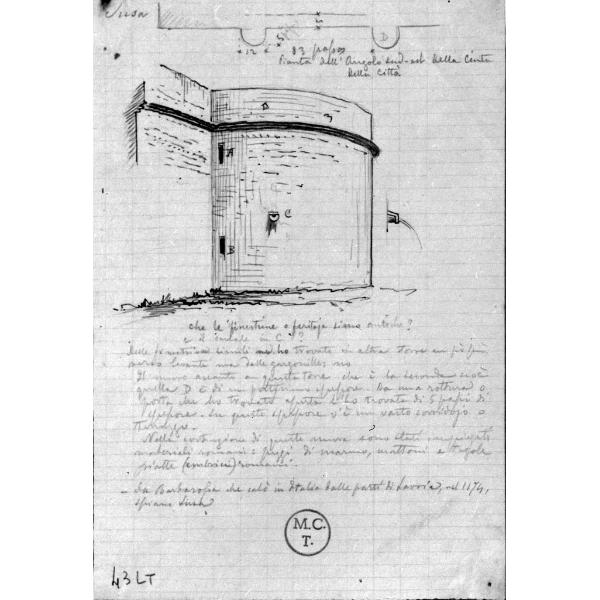 Susa
12
5
13 passi
D
Pianta dell'Angolo sud-est della Cinta
della Città
A
C
B
che le finestrine o feritoje siano antiche?
e il canale in C?
Delle finestrine simili ne ho trovate in altra torre un più più
verso levante ma delle gargouilles no
Il muro accanto a questa torre che è la seconda cioè
quella D è di un spessore. Da una rottura o
porta che ho trovato aperta l'ho trovato di 5 passi di
spessore. In questo spessore v'è un vasto corridojo o

Nella costruzione di queste mura sono stati impiegati
materiali romani: pezzi di marmo, mattoni e tegole
piatte (embrici) romani.
– La Barbarossa che calò in Italia dalle parti di Savoia, nel 1174,
spianò Susa
M.C.
T.
43 LT